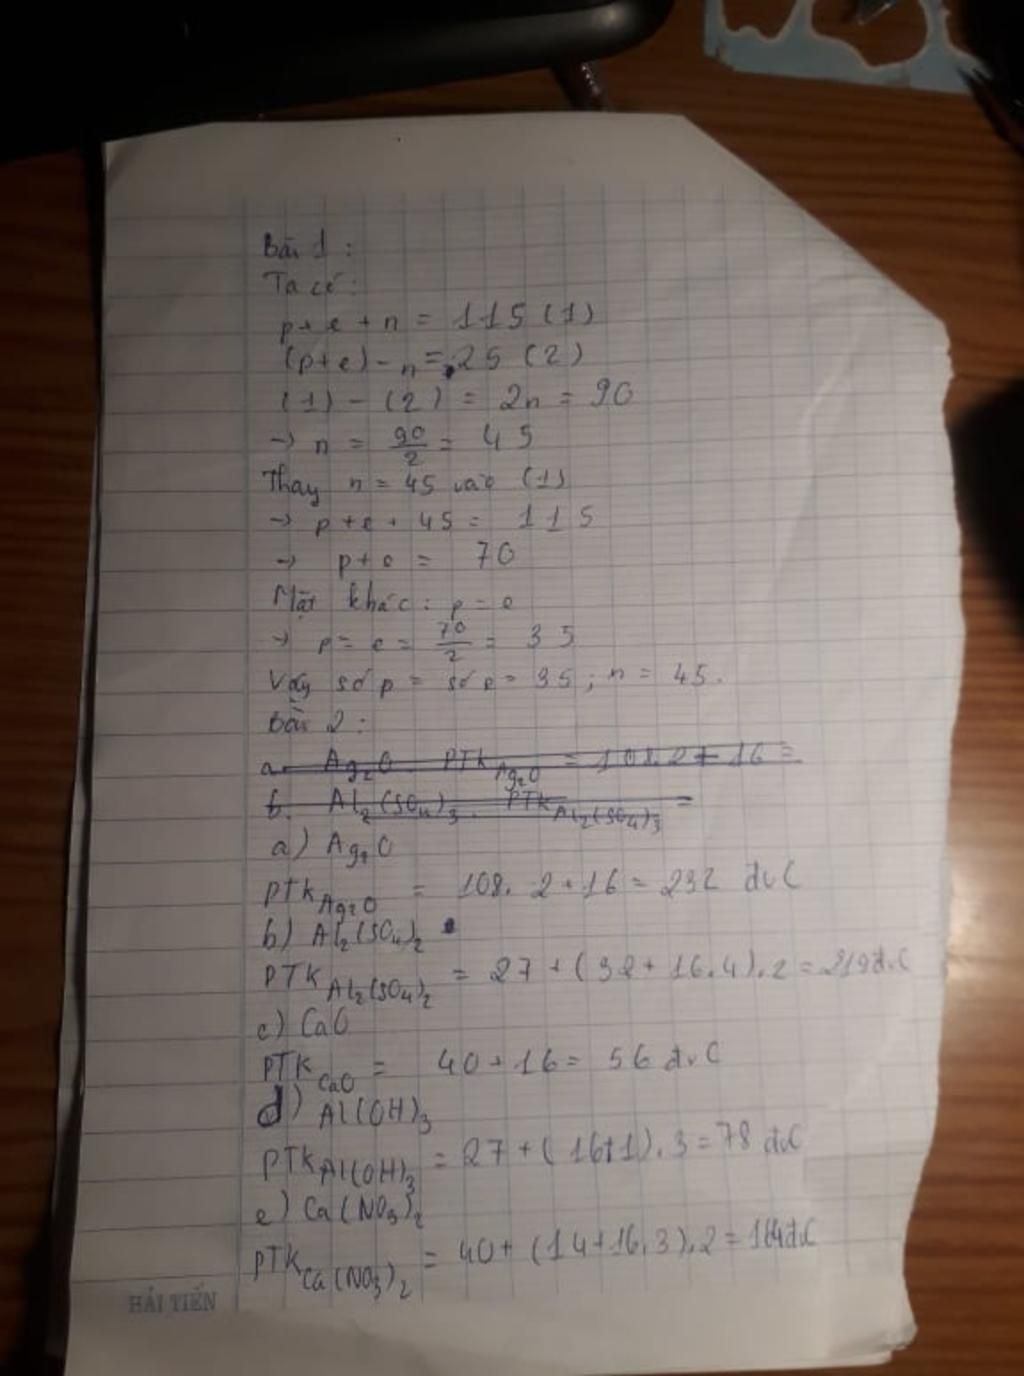 Bài 1:
Ta có:
p+e+n = 115 (1)
(p+e)-n = 25 (2)
(1) - (2) = 2n = 90
→ n = 90/2 = 45
Thay n = 45 vào (1)
→ p+e+45 = 115
→ p+e = 70
Mặt khác: p = e
→ p = e = 70/2 = 35
Vậy số p = số e = 35; n = 45.
Bài 2:
a. Ag2O PTK Ag2O = 108.2+16 =
b. Al2(SO4)3. PTK Al2(SO4)3 =
a) Ag2O
PTK Ag2O = 108.2+16 = 232 đvC
b) Al2(SO4)2
PTK Al2(SO4)2 = 27+(32+16.4).2 = 219 đvC
c) CaO
PTK CaO = 40+16 = 56 đvC
d) Al(OH)3
PTK Al(OH)3 = 27+(16+1).3 = 78 đvC
e) Ca(NO3)2
PTK Ca(NO3)2 = 40+(14+16.3).2 = 164 đvC
HẢI TIẾN